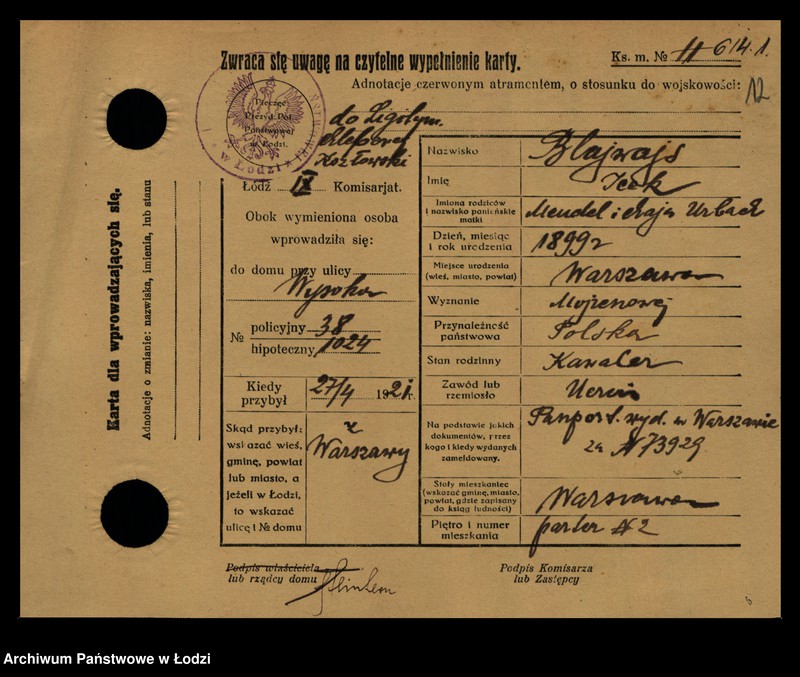 Zwraca się uwagę na czytelne wypełnienie karty.
Ks. m. № 614.1.
Adnotacje czerwonym atramentem, o stosunku do wojskowości:
12
Pieczęć
Prezyd. Pol.
Państwowej
w Łodzi.
w Łodzi
do
Kozłowski
Łódź IX Komisarjat.
Obok wymieniona osoba
wprowadziła się:
do domu przy ulicy
Wysoka
№ policyjny 38
hipoteczny 1024
Kiedy przybył 27/4 1921 r.
Skąd przybył:
wskazać wieś,
gminę, powiat
lub miasto, a
jeżeli w Łodzi,
to wskazać
ulicę i № domu
z
Warszawy
Nazwisko Blajwajs
Imię Icek
Imiona rodziców
i nazwisko panieńskie
matki
Mendel i Chaja Urbach
Dzień, miesiąc
i rok urodzenia
1899 r
Miejsce urodzenia
(wieś, miasto, powiat)
Warszawa
Wyznanie Mojżeszowe
Przynależność
państwowa
Polska
Stan rodzinny Kawaler
Zawód lub
rzemiosło
Uczeń
Na podstawie jakich
dokumentów, przez
kogo i kiedy wydanych
zameldowany.
Paszport. wyd. w Warszawie
za N 73929
Stały mieszkaniec
(wskazać gminę, miasto,
powiat, gdzie zapisany
do ksiąg ludności)
Warszawa
Piętro i numer
mieszkania
parter N 2
Podpis właściciela
lub rządcy domu
Podpis Komisarza
lub Zastępcy
Karta dla wprowadzających się.
Adnotacje o zmianie: nazwiska, imienia, lub stanu
Archiwum Państwowe w Łodzi